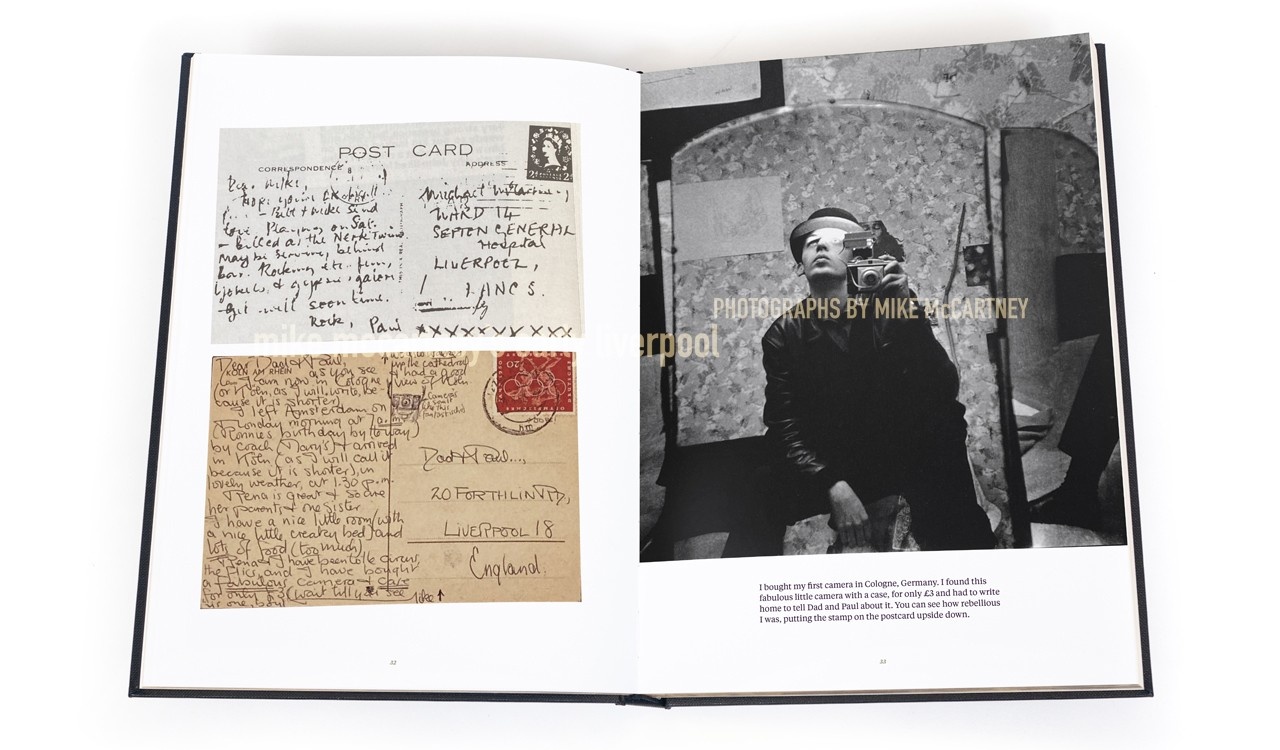 POST CARD
CORRESPONDENCE
ADDRESS
Mike,
Hope you're
- Bill + Mike send
love. Playing on Sat.
- billed as the Nerk Twins.
maybe serving behind
bar. Rocking etc. fun,
get well soon time.
Rock, Paul
Michael McCartney,
WARD 14
SEFTON GENERAL
Hospital
LIVERPOOL,
LANCS.
XXXXXXXXXX
Dear Dad & Paul,
KÖLN AM RHEIN as you see
I am now in Cologne
(or Köln, as I will write, be-
cause it is shorter)
I left Amsterdam on
Monday morning at
(Ronnies birthday by the way)
by coach (Mary's) + arrived
in Köln (as I will call it
because it is shorter), in
lovely weather, at 1.30 p.m.
Rena is great & so are
her parents & one sister
I have a nice little room (with
a nice little creaky bed) and
lots of food (too much)
Rena & I have been to the circus
the flics and I have bought
a fabulous camera + case
for only £3 (wait till you see
Mike
in the cathedral
+ had a good
view of Köln
Camera
is small
like this
(fantastische)
20
Dad & Paul...,
20 FORTHLIN RD,
LIVERPOOL 18
England.
32
PHOTOGRAPHS BY MIKE McCARTNEY
mike mccartney's early liverpool
I bought my first camera in Cologne, Germany. I found this
fabulous little camera with a case, for only £3 and had to write
home to tell Dad and Paul about it. You can see how rebellious
I was, putting the stamp on the postcard upside down.
33